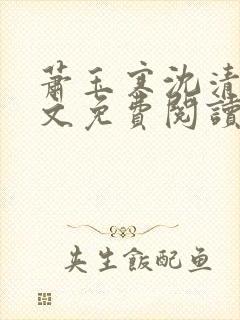 蕭玉寒沈清
文免費閱讀
夹生飯配鱼